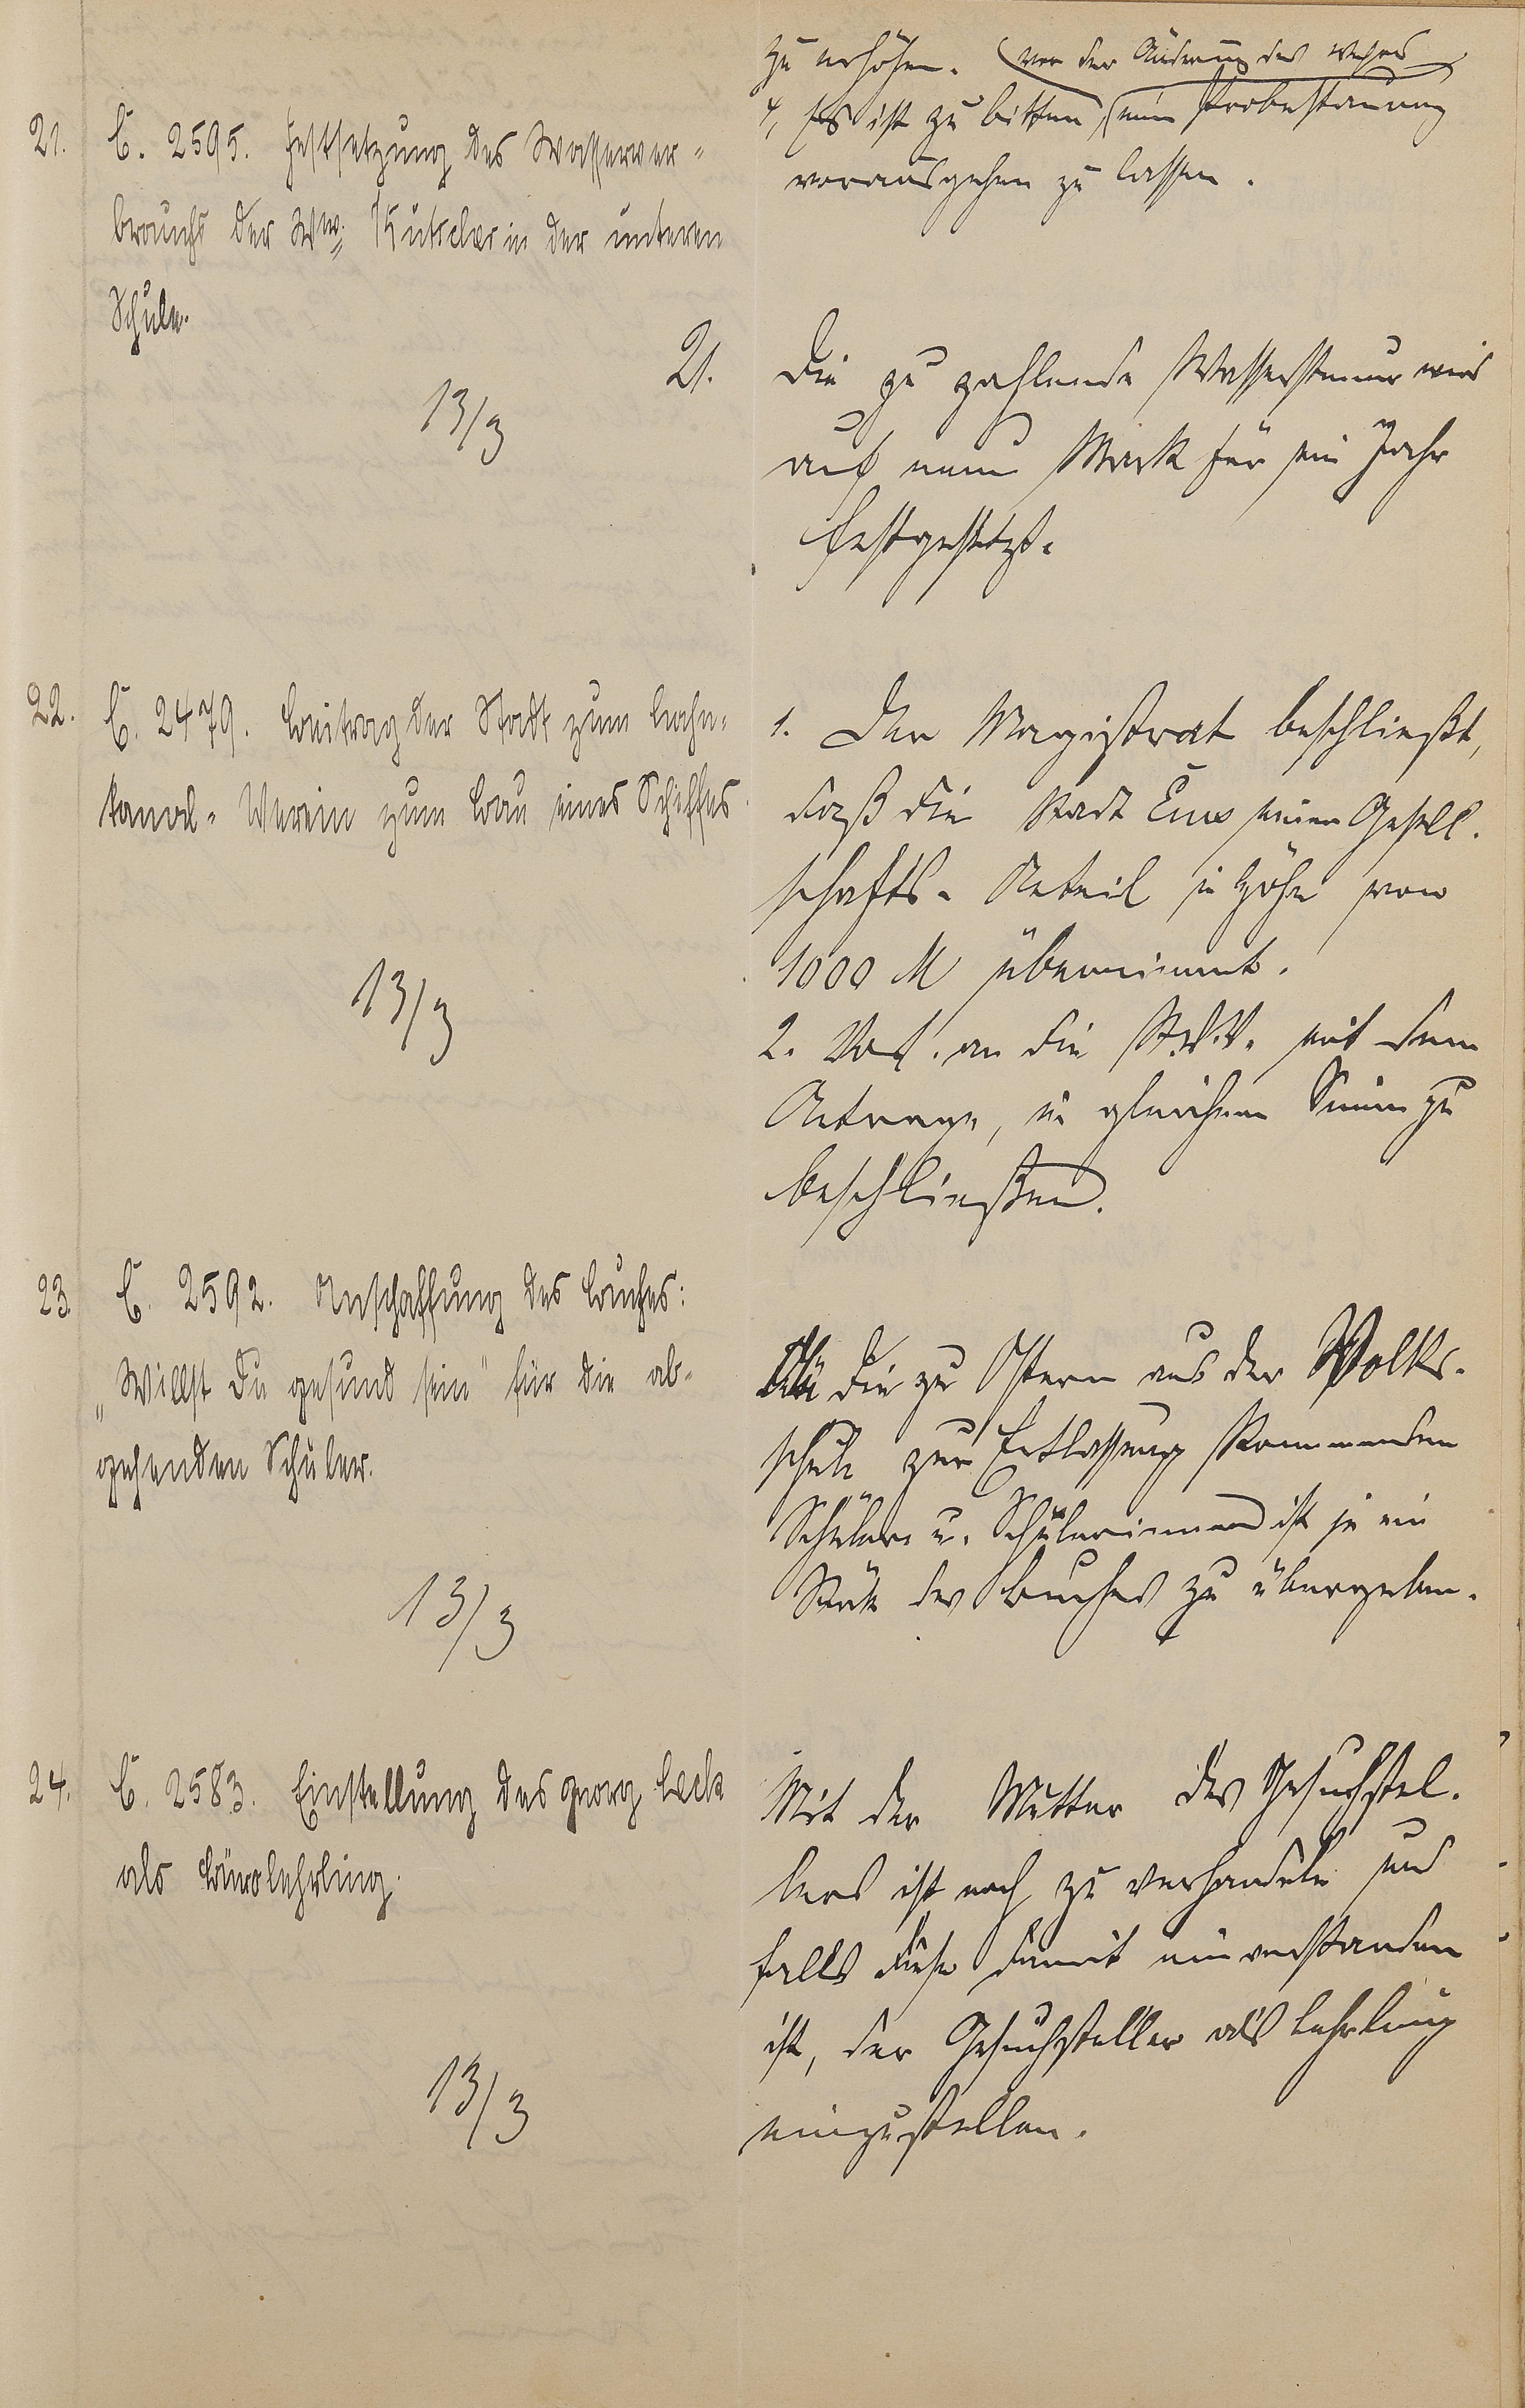 zu erhöhen.
vor der Änderung des Wehres
4, Es ist zu bitten, eine Probestauung
vorausgehen zu lassen.
21. C. 2595. Festsetzung des Wasserver-
brauchs der Ww. Kutscher in der unteren
Schule.
13/3
21. Die zu zahlende Wassersteuer wird
auf neun Mark für ein Jahr
festgesetzt.
22. C. 2479. Beitrag der Stadt zum Lahn-
kanal-Verein zum Bau eines Schiffes.
13/3
1. Der Magistrat beschließt,
daß die Stadt Ems einen Gesell-
schafts-Anteil in Höhe von
1000 M übernimmt.
2. Vorl. an die St.V.V. mit dem
Antrage, in gleichem Sinne zu
beschließen.
23. C. 2592. Anschaffung des Buches:
"Willst Du gesund sein" für die ab-
gehenden Schüler.
13/3
die zu Ostern aus der Volks-
schule zur Entlassung kommenden
Schüler u. Schülerinnen ist je ein
Stück des Buches zu übergeben.
24. C. 2583. Einstellung des Georg Beck
als Bürolehrling.
13/3
Mit der Mutter des Gesuchstel-
lers ist noch zu verhandeln und
falls diese damit einverstanden
ist, der Gesuchsteller als Lehrling
einzustellen.